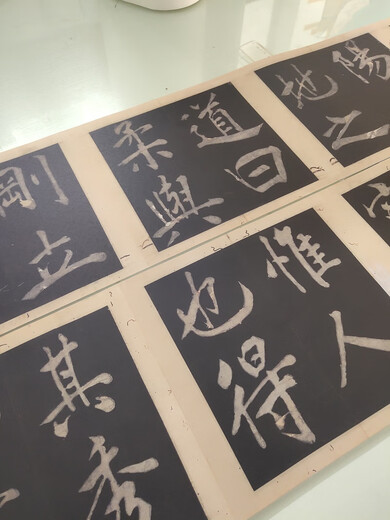 陽
地之
道曰
柔與
剛立
惟人
也得
其秀